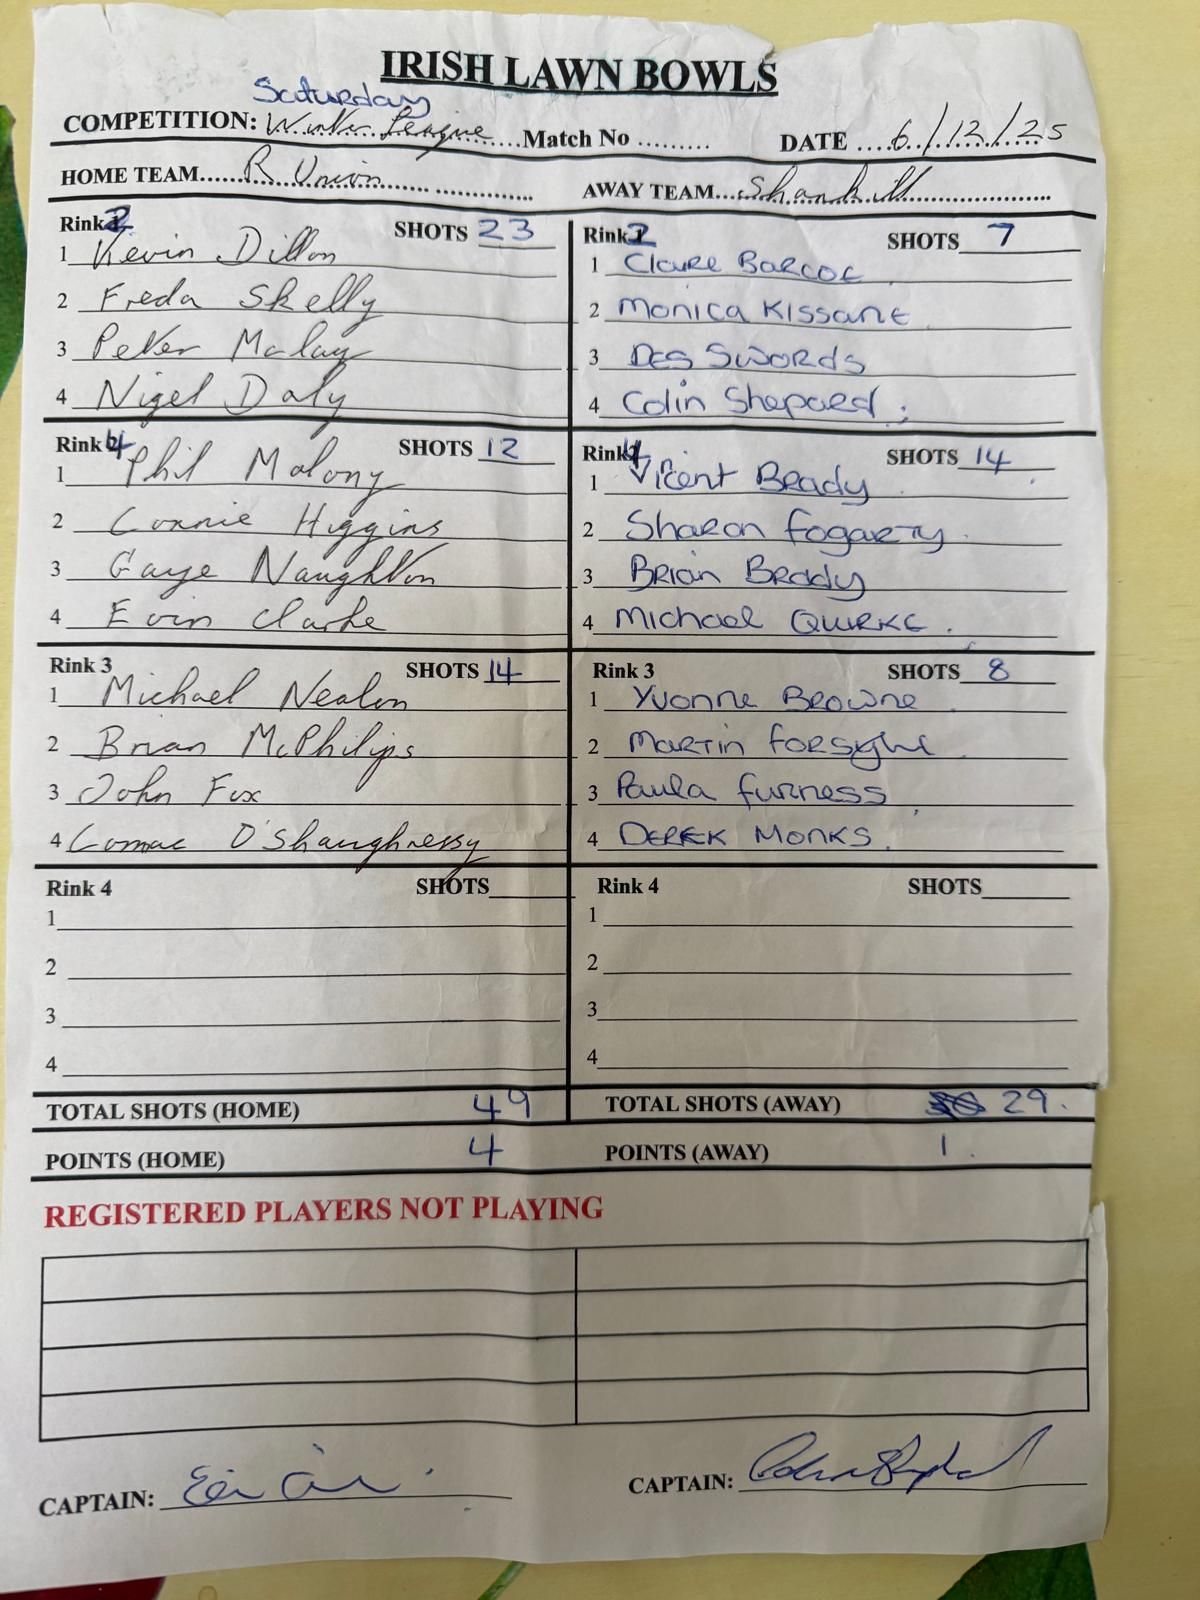 IRISH LAWN BOWLS
Saturday
COMPETITION: Winter League Match No ......... DATE 6/12/25
HOME TEAM R Union AWAY TEAM Shankill
Rink 2 SHOTS 23
1 Kevin Dillon
2 Freda Skelly
3 Peter Malay
4 Nigel Daly
Rink 2 SHOTS 7
1 Claire Barcoe
2 Monica Kissane
3 Des Swords
4 Colin Shepard
Rink 4 SHOTS 12
1 Phil Malony
2 Connie Higgins
3 Gaye Naughton
4 Eoin Clarke
Rink 4 SHOTS 14
1 Vicent Brady
2 Sharon Fogarty
3 Brian Brady
4 Michael Quirke
Rink 3 SHOTS 14
1 Michael Nealon
2 Brian McPhilips
3 John Fox
4 Cormac O'Shaughnessy
Rink 3 SHOTS 8
1 Yvonne Browne
2 Martin Forsyhe
3 Paula Furness
4 DEREK MONKS
Rink 4 SHOTS
1
2
3
4
Rink 4 SHOTS
1
2
3
4
TOTAL SHOTS (HOME) 49 TOTAL SHOTS (AWAY) 29.
POINTS (HOME) 4 POINTS (AWAY) 1.
REGISTERED PLAYERS NOT PLAYING
CAPTAIN: CAPTAIN: